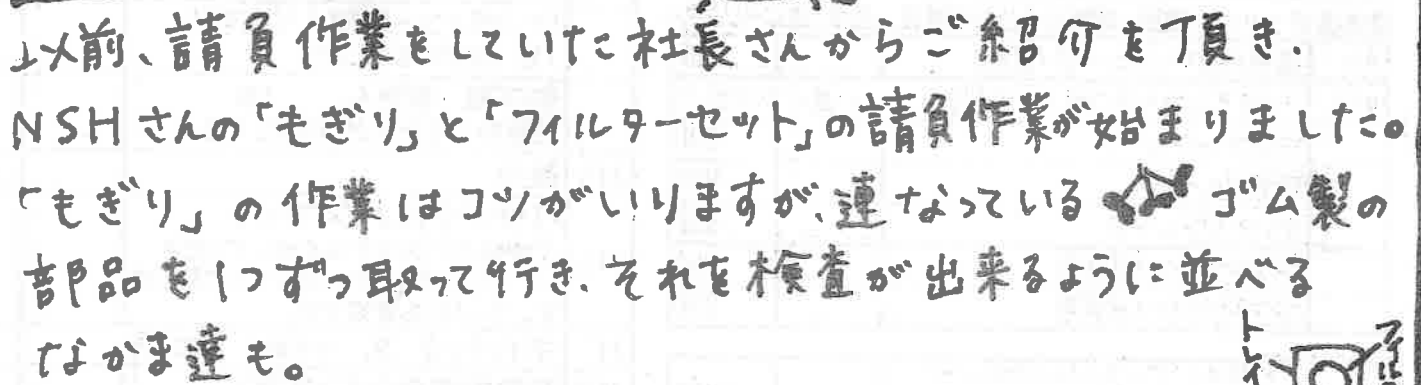 以前、請負作業をしていた社長さんからご紹介を頂き、
NSHさんの「もぎり」と「フィルターセット」の請負作業が始まりました。
「もぎり」の作業はコツがいりますが、連なっているゴム製の
部品を1つずつ取って行き、それを検査が出来るように並べる
なかま達も。
トレイ